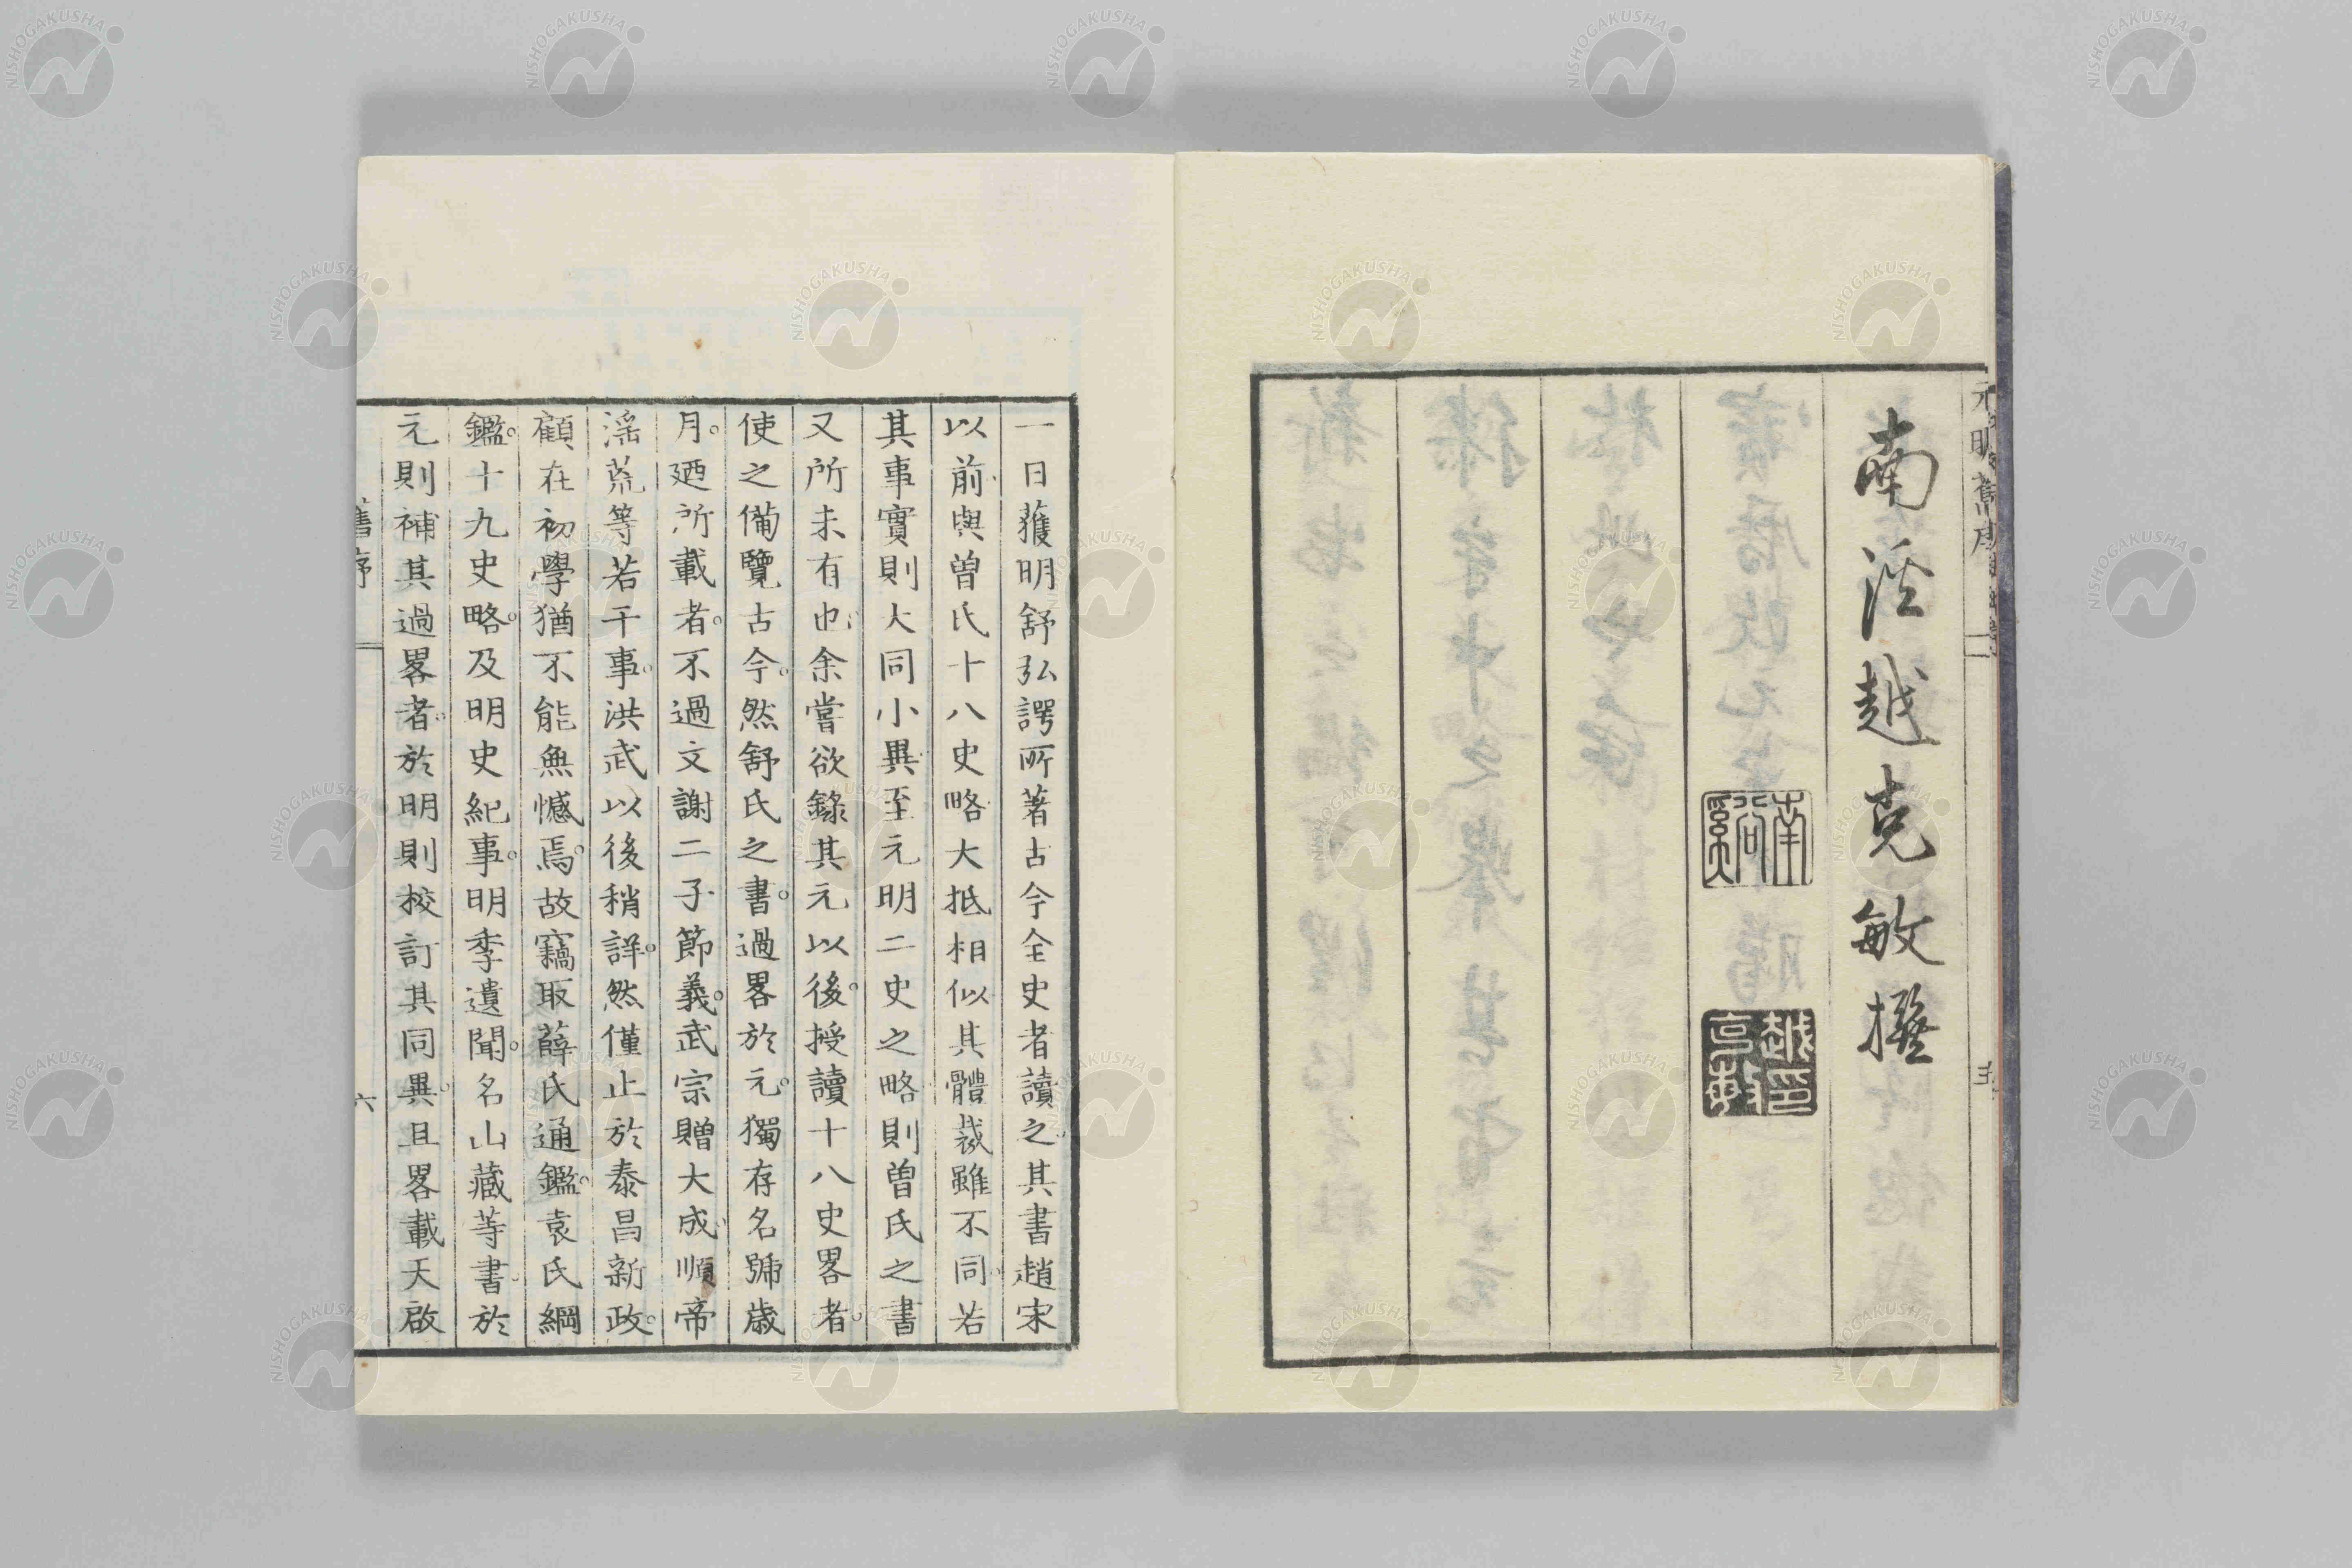 南渓越克敏撰
南谿
越克敏印
五
一日獲明舒弘諤所著古今全史者讀之其書趙宋
以前與曽氏十八史略大抵相似其體裁雖不同若
其事實則大同小異至元明二史之略則曽氏之書
又所未有也余嘗欲錄其元以後授讀十八史畧者
使之備覽古今然舒氏之書過畧於元獨存名號歳
月廼所載者不過文謝二子節義武宗贈大成順帝
淫荒等若干事洪武以後稍詳然僅止於泰昌新政
顧在初學猶不能無憾焉故竊取薛氏通鑑袁氏綱
鑑十九史略及明史紀事明季遺聞名山藏等書於
元則補其過畧者於明則校訂其同異且畧載天啟
舊序
六
NISHOGAKUSHA